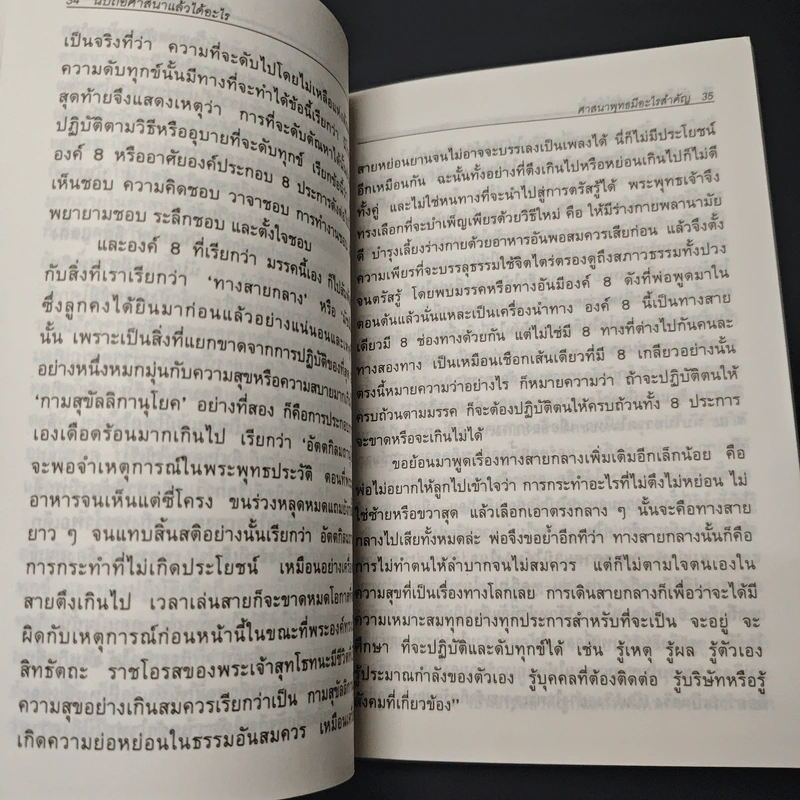 34 นับถือศาสนาแล้วได้อะไร
เป็นจริงที่ว่า ความที่จะดับไปโดยไม่เหลือ
ความดับทุกข์นั้นมีทางที่จะทำได้ข้อนี้เรียกว่า
สุดท้ายจึงแสดงเหตุว่า การที่จะดับตัณหาได้
ปฏิบัติตามวิธีหรืออุบายที่จะดับทุกข์ เรียกข้อนี้
องค์ 8 หรืออาศัยองค์ประกอบ 8 ประการดัง
เห็นชอบ ความคิดชอบ วาจาชอบ การทำงานชอบ
พยายามชอบ ระลึกชอบ และตั้งใจชอบ
และองค์ 8 ที่เรียกว่า มรรคนี้เอง ก็ไป
กับสิ่งที่เราเรียกว่า ‘ทางสายกลาง’ หรือ
ซึ่งลูกคงได้ยินมาก่อนแล้วอย่างแน่นอนและ
นั้น เพราะเป็นสิ่งที่แยกขาดจากการปฏิบัติของที่สุด
อย่างหนึ่งหมกมุ่นกับความสุขหรือความสบายมาก
‘กามสุขัลลิกานุโยค’ อย่างที่สอง ก็คือการประกอบ
เองเดือดร้อนมากเกินไป เรียกว่า ‘อัตตกิลมถา
จะพอจำเหตุการณ์ในพระพุทธประวัติ ตอนที่
อาหารจนเห็นแต่ซี่โครง ขนร่วงหลุดหมดแถมยัง
ยาว ๆ จนแทบสิ้นสติอย่างนั้นเรียกว่า อัตตกิลมถา
การกระทำที่ไม่เกิดประโยชน์ เหมือนอย่าง
สายตึงเกินไป เวลาเล่นสายก็จะขาดหมดโอกาส
ผิดกับเหตุการณ์ก่อนหน้านี้ในขณะที่พระองค์ทรง
สิทธัตถะ ราชโอรสของพระเจ้าสุทโธทนะมีชีวิต
ความสุขอย่างเกินสมควรเรียกว่าเป็น กามสุขัลลิกา
เกิดความย่อหย่อนในธรรมอันสมควร เหมือน
ศาสนาพุทธมีอะไรสำคัญ 35
สายหย่อนยานจนไม่อาจจะบรรเลงเป็นเพลงได้ นี่ก็ไม่มีประโยชน์
อีกเหมือนกัน ฉะนั้นทั้งอย่างที่ตึงเกินไปหรือหย่อนเกินไปก็ไม่ดี
ทั้งคู่ และไม่ใช่หนทางที่จะนำไปสู่การตรัสรู้ได้ พระพุทธเจ้าจึง
ทรงเลือกที่จะบำเพ็ญเพียรด้วยวิธีใหม่ คือ ให้มีร่างกายพลานามัย
ดี บำรุงเลี้ยงร่างกายด้วยอาหารอันพอสมควรเสียก่อน แล้วจึงตั้ง
ความเพียรที่จะบรรลุธรรมใช้จิตไตร่ตรองดูถึงสภาวธรรมทั้งปวง
จนตรัสรู้ โดยพบมรรคหรือทางอันมีองค์ 8 ดังที่พ่อพูดมาใน
ตอนต้นแล้วนั่นแหละเป็นเครื่องนำทาง องค์ 8 นี้เป็นทางสาย
เดียวมี 8 ช่องทางด้วยกัน แต่ไม่ใช่มี 8 ทางที่ต่างไปกันคนละ
ทางสองทาง เป็นเหมือนเชือกเส้นเดียวที่มี 8 เกลียวอย่างนั้น
ตรงนี้หมายความว่าอย่างไร ก็หมายความว่า ถ้าจะปฏิบัติตนให้
ครบถ้วนตามมรรค ก็จะต้องปฏิบัติตนให้ครบถ้วนทั้ง 8 ประการ
จะขาดหรือจะเกินไม่ได้
ขอย้อนมาพูดเรื่องทางสายกลางเพิ่มเติมอีกเล็กน้อย คือ
พ่อไม่อยากให้ลูกไปเข้าใจว่า การกระทำอะไรที่ไม่ตึงไม่หย่อน ไม่
ใช่ซ้ายหรือขวาสุด แล้วเลือกเอาตรงกลาง ๆ นั้นจะคือทางสาย
กลางไปเสียทั้งหมดล่ะ พ่อจึงขอย้ำอีกทีว่า ทางสายกลางนั้นก็คือ
การไม่ทำตนให้ลำบากจนไม่สมควร แต่ก็ไม่ตามใจตนเองใน
ความสุขที่เป็นเรื่องทางโลกเลย การเดินสายกลางก็เพื่อว่าจะได้มี
ความเหมาะสมทุกอย่างทุกประการสำหรับที่จะเป็น จะอยู่ จะ
ศึกษา ที่จะปฏิบัติและดับทุกข์ได้ เช่น รู้เหตุ รู้ผล รู้ตัวเอง
รู้ประมาณกำลังของตัวเอง รู้บุคคลที่ต้องติดต่อ รู้บริษัทหรือรู้
สังคมที่เกี่ยวข้อง”